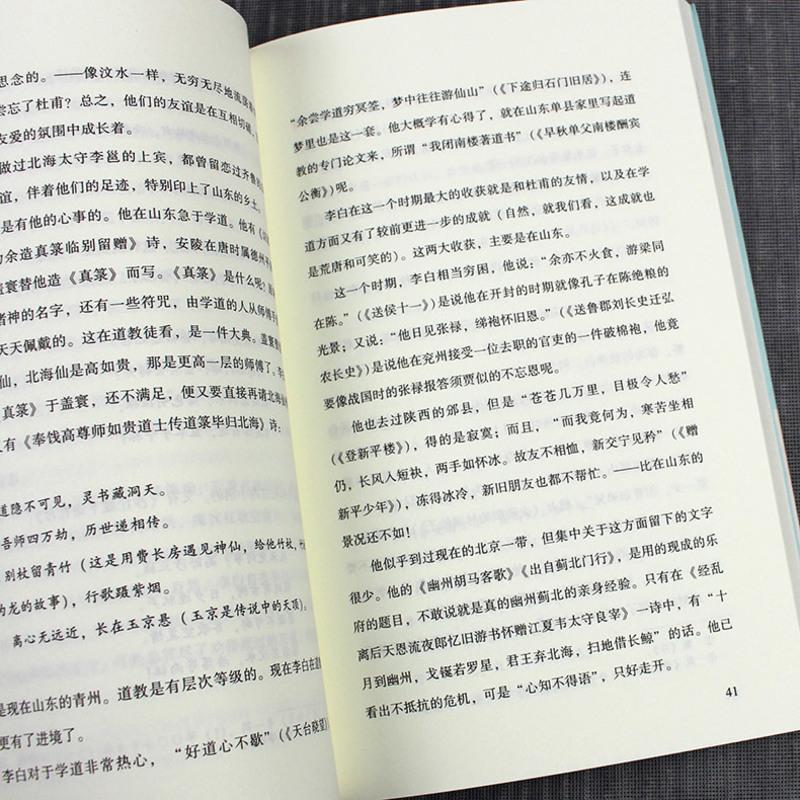 思念的。——像汶水一样，无穷无尽地流
尝忘了杜甫？总之，他们的友谊是在互相切磋
友爱的氛围中成长着。
做过北海太守李邕的上宾，都曾留恋过齐鲁的
谊，伴着他们的足迹，特别印上了山东的乡土。
是有他的心事的。他在山东急于学道。他有
为余造真箓临别留赠》诗，安陵在唐时属德州平
盖寰替他造《真箓》而写。《真箓》是什么呢？
诸神的名字，还有一些符咒，由学道的人从师
天天佩戴的。这在道教徒看，是一件大典。盖寰
仙，北海仙是高如贵，那是更高一层的师傅了。李
真箓》于盖寰，还不满足，便又要直接再诣北海
又有《奉饯高尊师如贵道士传道箓毕归北海》诗：
道隐不可见，灵书藏洞天。
吾师四万劫，历世递相传。
别杖留青竹（这是用费长房遇见神仙，给他竹杖，
为龙的故事），行歌蹑紫烟。
离心无远近，长在玉京悬（玉京是传说中的天顶）。
是现在山东的青州。道教是有层次等级的。现在李白在道
更有了进境了。
李白对于学道非常热心，“好道心不歇”（《天台晓望》
“余尝学道穷冥筌，梦中往往游仙山”（《下途归石门旧居》），连
梦里也是这一套。他大概学有心得了，就在山东单县家里写起道
教的专门论文来，所谓“我闭南楼著道书”（《早秋单父南楼酬窦
公衡》）呢。
李白在这一个时期最大的收获就是和杜甫的友情，以及在学
道方面又有了较前更进一步的成就（自然，就我们看，这成就也
是荒唐和可笑的）。这两大收获，主要是在山东。
这一个时期，李白相当穷困，他说：“余亦不火食，游梁同
在陈。”（《送侯十一》）是说他在开封的时期就像孔子在陈绝粮的
光景；又说：“他日见张禄，绨袍怀旧恩。”（《送鲁郡刘长史迁弘
农长史》）是说他在兖州接受一位去职的官吏的一件破棉袍，他竟
要像战国时的张禄报答须贾似的不忘恩呢。
他也去过陕西的邠县，但是“苍苍几万里，目极令人愁”
（《登新平楼》），得的是寂寞；而且，“而我竟何为，寒苦坐相
仍，长风入短袂，两手如怀冰。故友不相恤，新交宁见矜”（《赠
新平少年》），冻得冰冷，新旧朋友也都不帮忙。——比在山东的
景况还不如！
他似乎到过现在的北京一带，但集中关于这方面留下的文字
很少。他的《幽州胡马客歌》《出自蓟北门行》，是用的现成的乐
府的题目，不敢说就是真的幽州蓟北的亲身经验。只有在《经乱
离后天恩流夜郎忆旧游书怀赠江夏韦太守良宰》一诗中，有“十
月到幽州，戈铤若罗星，君王弃北海，扫地借长鲸”的话。他已
看出不抵抗的危机，可是“心知不得语”，只好走开。
41